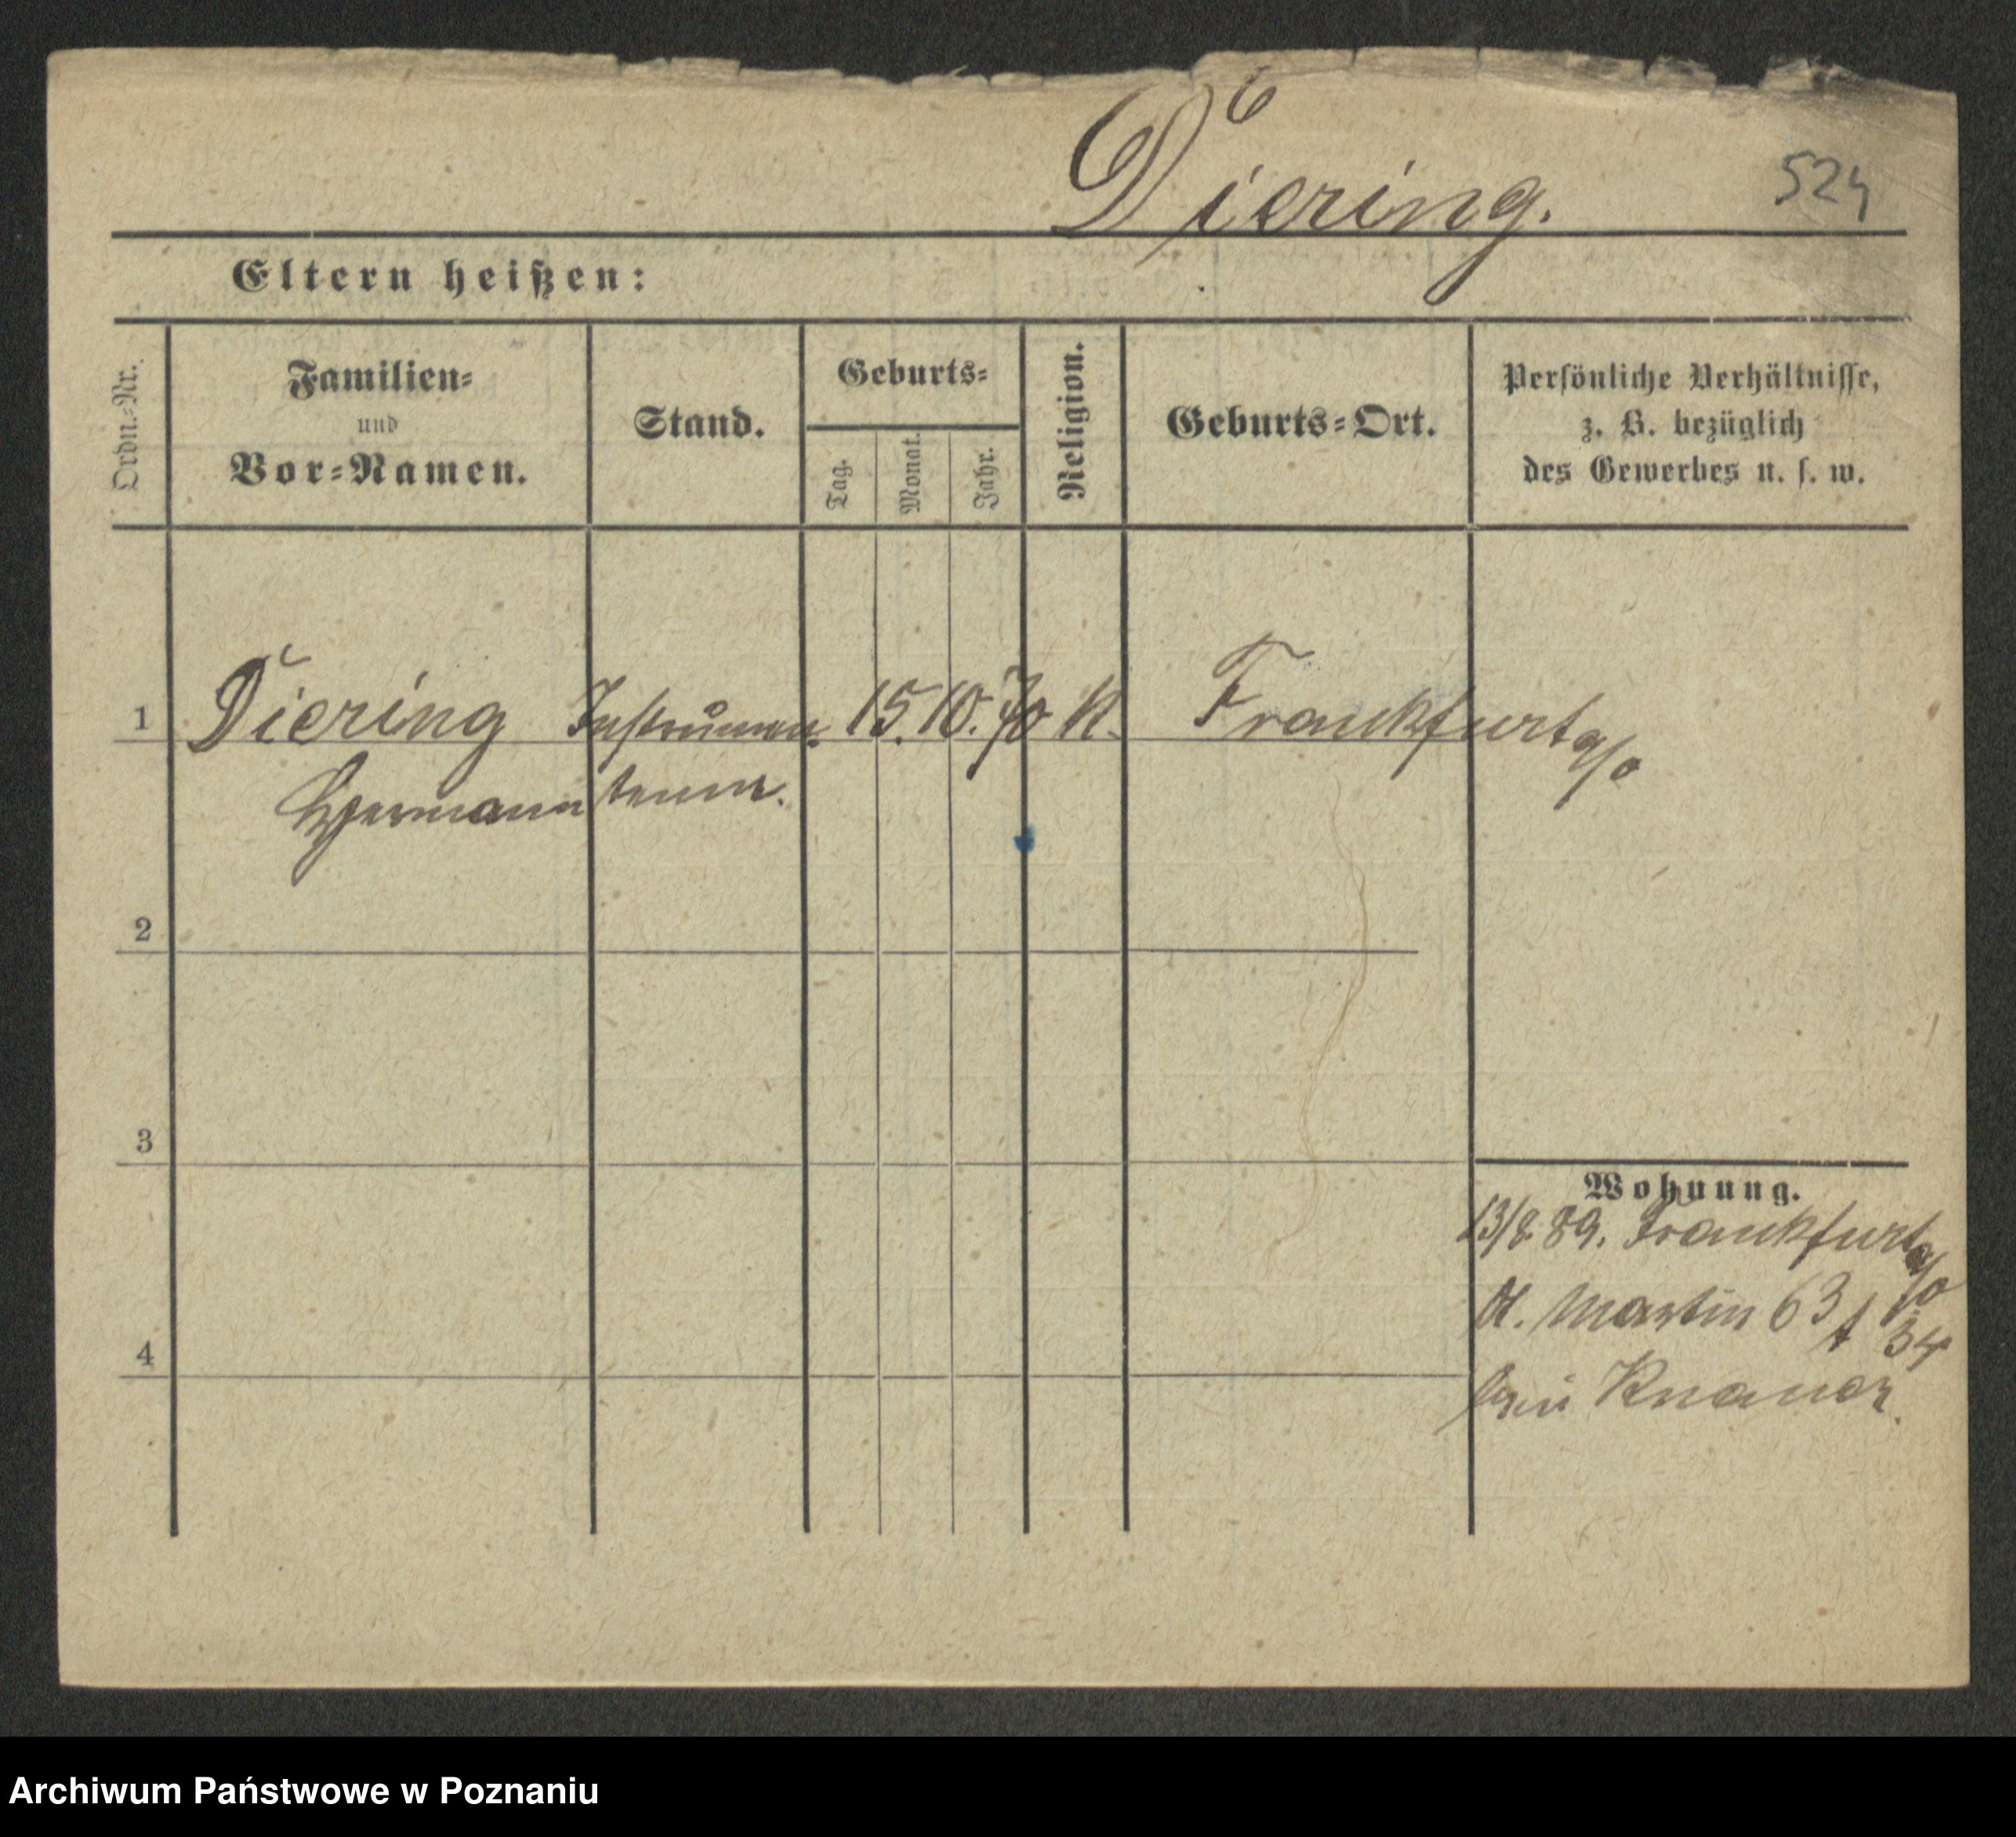 Diering.
524
Eltern heißen:
Ordn.-Nr.
Familien-
und
Vor-Namen.
Stand.
Geburts-
Tag.
Monat.
Jahr.
Religion.
Geburts-Ort.
Persönliche Verhältnisse,
z. B. bezüglich
des Gewerbes u. s. w.
1 Diering Instrumen- 15. 10. 70 K. Frankfurt a/o
Hermann
2
3
4
Wohnung.
13/8. 89. Frankfurt a/o
St. Martin 63 34
bei Knauer.
Archiwum Państwowe w Poznaniu